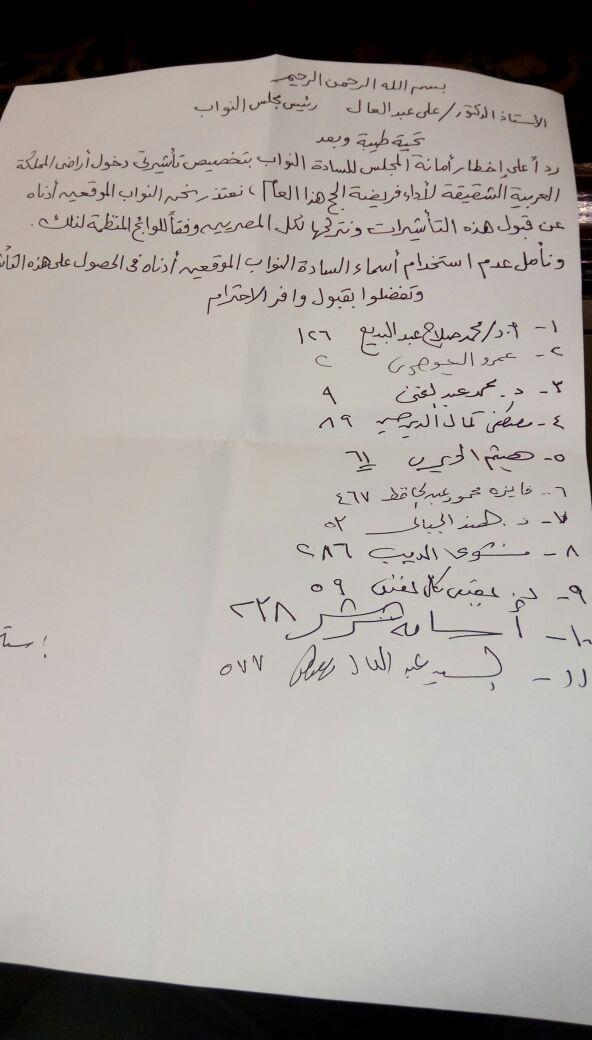 بسم الله الرحمن الرحيم
الأستاذ الدكتور/ على عبد العال رئيس مجلس النواب
تحية طيبة وبعد
رداً على إخطار أمانة المجلس للسادة النواب بتخصيص تأشيرتى دخول أراضى المملكة
العربية الشقيقة لأداء فريضة الحج هذا العام، نعتذر نحن النواب الموقعين أدناه
عن قبول هذه التأشيرات ونتركها لكل المصريين وفقاً للوائح المنظمة لذلك.
ونأمل عدم استخدام أسماء السادة النواب الموقعين أدناه فى الحصول على هذه
وتفضلوا بقبول وافر الاحترام
١- أ.د/ محمد صلاح عبد البديع ١٢٦
٢- عمرو الجوهرى ٢
٣- د. محمد عبد الغنى ٩
٤- مصطفى كمال الدين حسين ٨٩
٥- هيثم الحريرى ٦١
٦- فايزه محمود عبد الحافظ ٤٦٧
٧- د. هند الجبالى ٥٢
٨- الديب ٢٨٦
٩- د. كمال ٥٩
١٠- أسامه شرشر ٢٣٨
١١- السيد عبد العال ٥٧٧